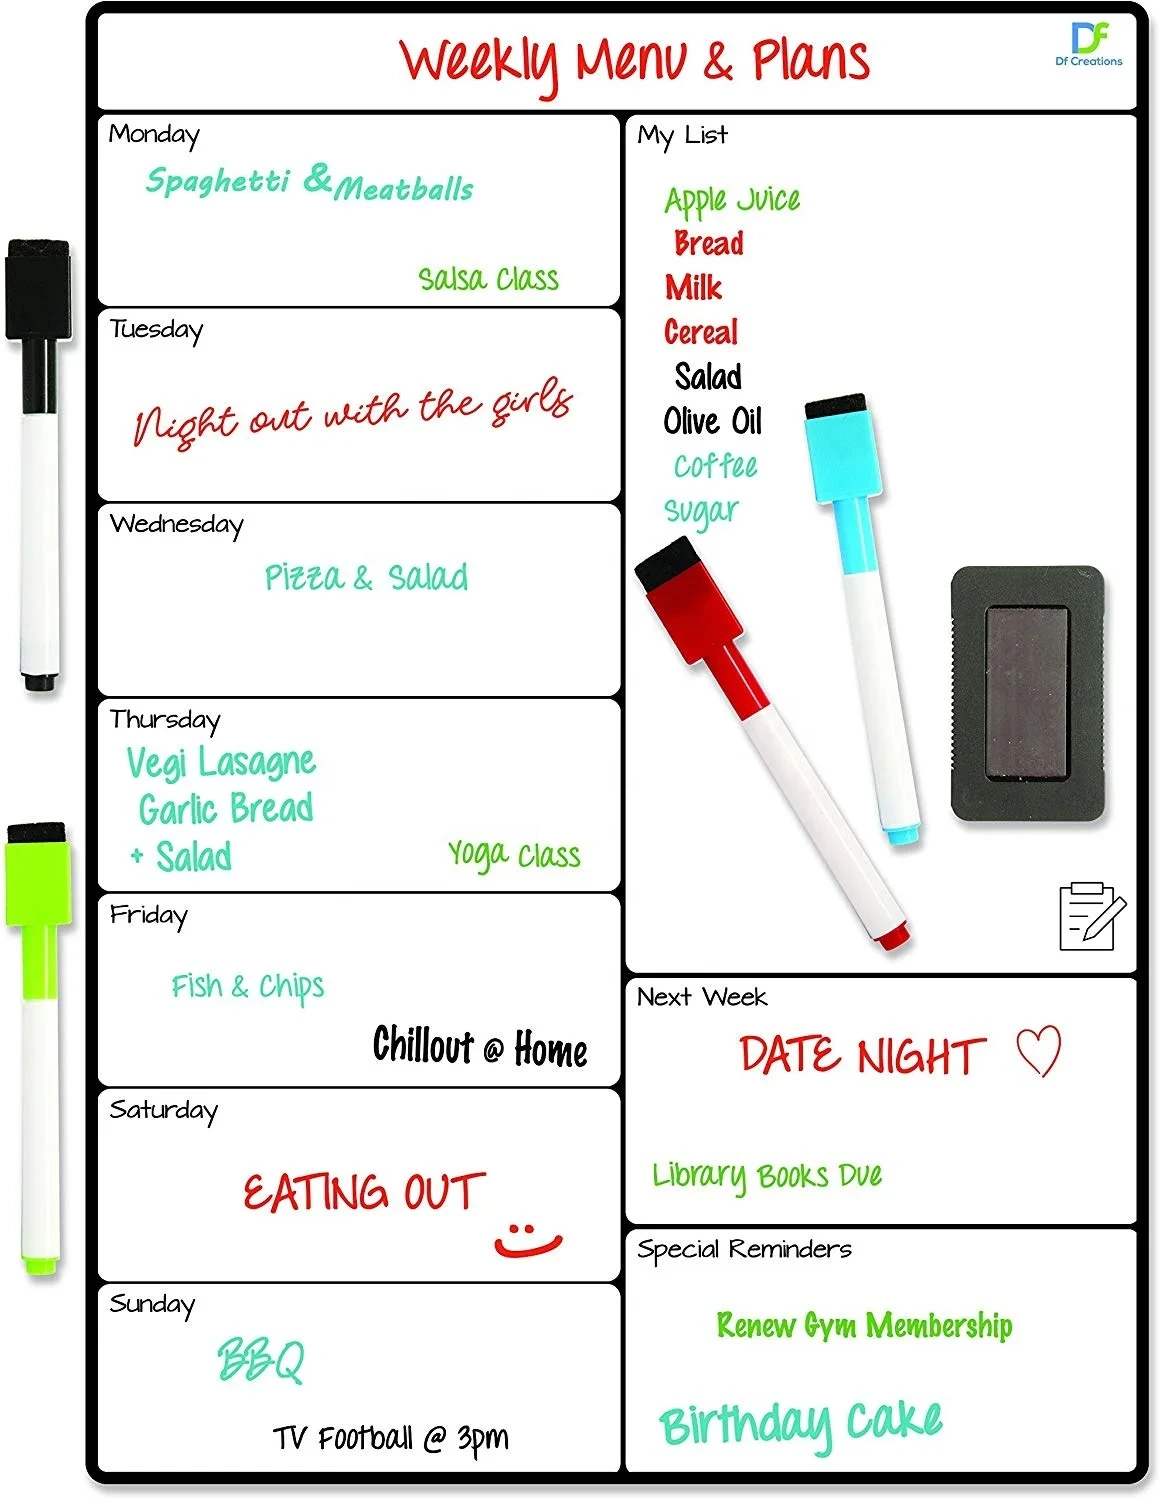 Weekly Menu & Plans
DF
Df Creations
Monday
Spaghetti & Meatballs
Salsa Class
Tuesday
Night out with the girls
Wednesday
Pizza & Salad
Thursday
Vegi Lasagne
Garlic Bread
+ Salad
Yoga Class
Friday
Fish & Chips
Chillout @ Home
Saturday
EATING OUT
Sunday
BBQ
TV Football @ 3pm
My List
Apple Juice
Bread
Milk
Cereal
Salad
Olive Oil
Coffee
Sugar
Next Week
DATE NIGHT
Library Books Due
Special Reminders
Renew Gym Membership
Birthday Cake